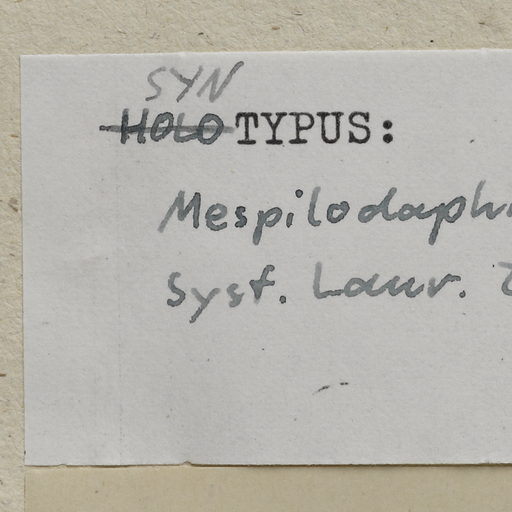 SYN
HOLOTYPUS:
Mespilodaph
Syst. Laur.